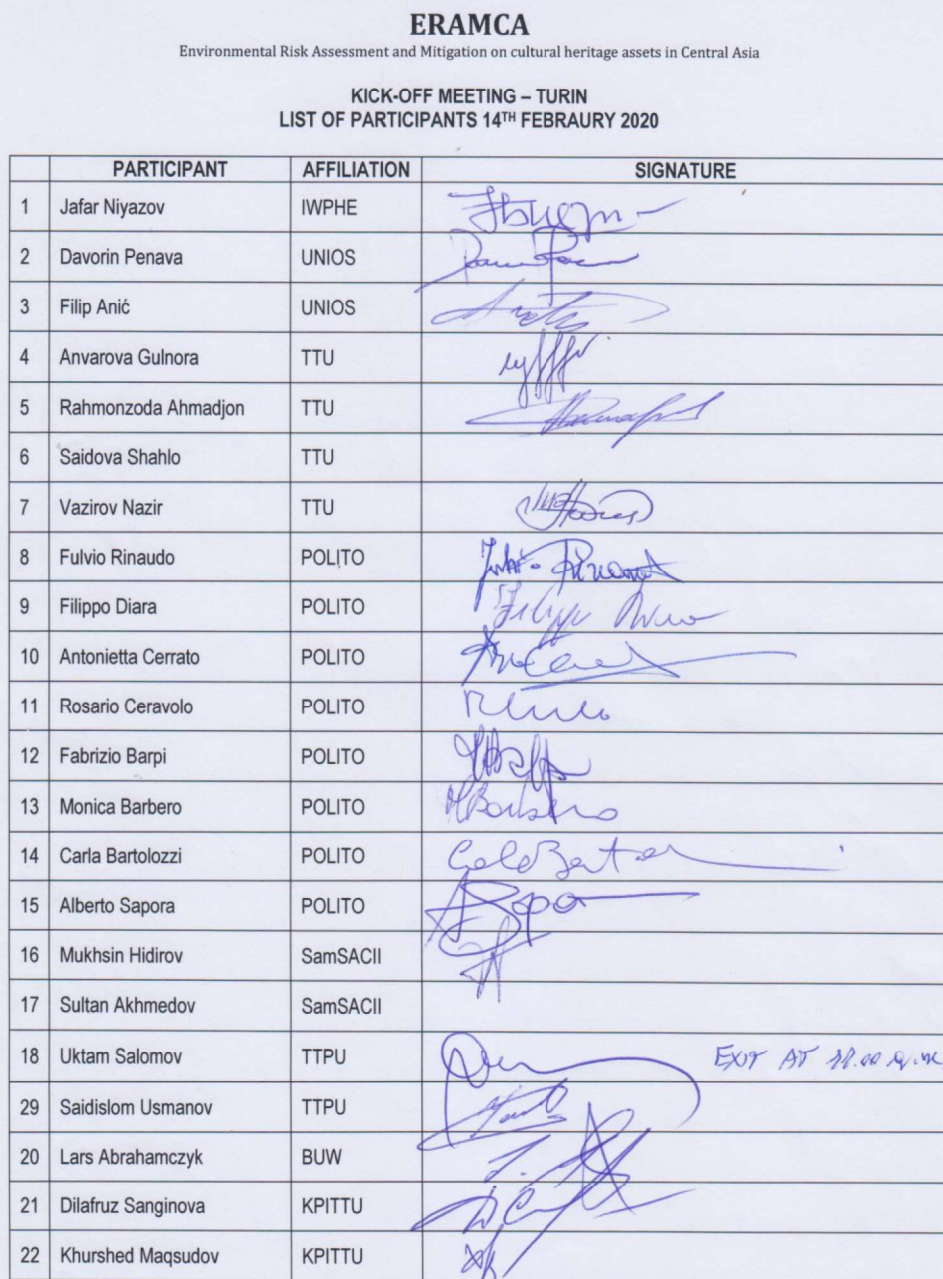 ERAMCA
Environmental Risk Assessment and Mitigation on cultural heritage assets in Central Asia
KICK-OFF MEETING – TURIN
LIST OF PARTICIPANTS 14TH FEBRAURY 2020
PARTICIPANT AFFILIATION SIGNATURE
1 Jafar Niyazov IWPHE
2 Davorin Penava UNIOS
3 Filip Anić UNIOS
4 Anvarova Gulnora TTU
5 Rahmonzoda Ahmadjon TTU
6 Saidova Shahlo TTU
7 Vazirov Nazir TTU
8 Fulvio Rinaudo POLITO
9 Filippo Diara POLITO
10 Antonietta Cerrato POLITO
11 Rosario Ceravolo POLITO
12 Fabrizio Barpi POLITO
13 Monica Barbero POLITO MBarbero
14 Carla Bartolozzi POLITO
15 Alberto Sapora POLITO
16 Mukhsin Hidirov SamSACII
17 Sultan Akhmedov SamSACII
18 Uktam Salomov TTPU EXIT AT
29 Saidislom Usmanov TTPU
20 Lars Abrahamczyk BUW
21 Dilafruz Sanginova KPITTU
22 Khurshed Maqsudov KPITTU